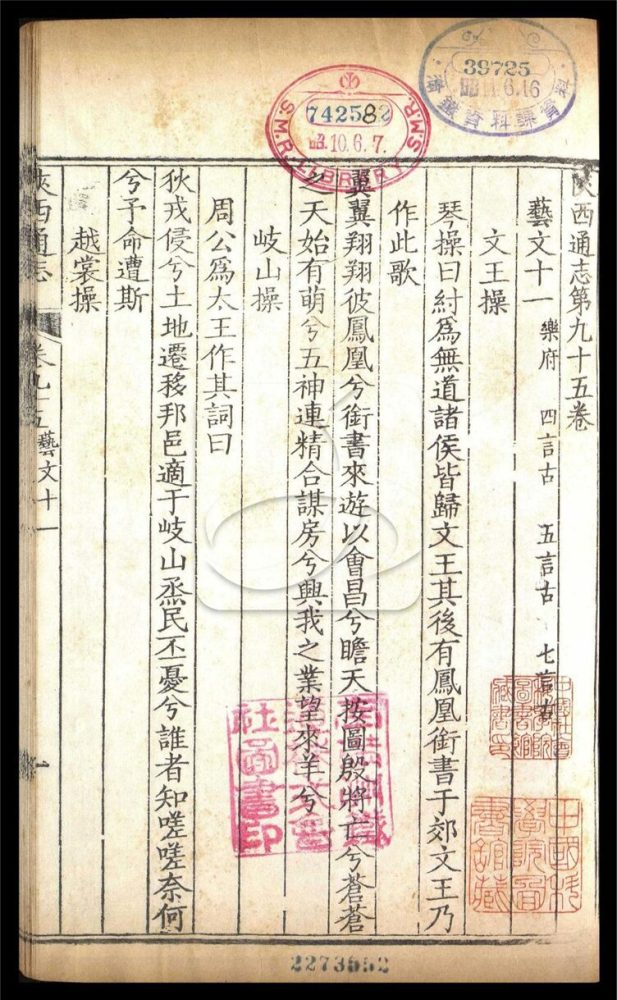 陝西通志第九十五卷
藝文十一 樂府 四言古 五言古 七言古
文王操
琴操曰紂爲無道諸侯皆歸文王其後有鳳凰銜書于郊文王乃
作此歌
翼翼翔翔彼鳳凰兮銜書來遊以會昌兮瞻天按圖殷將亡兮蒼蒼
之天始有萌兮五神連精合謀房兮興我之業望來羊兮
岐山操
周公爲太王作其詞曰
狄戎侵兮土地遷移邦邑適于岐山烝民不憂兮誰者知嗟嗟奈何
兮予命遭斯
越裳操
陝西通志
卷九十五藝文十一
一
742582
昭10.6.7.
S.M.R. LIBRARY S.M.R.
39725
昭11.6.16
社圖書印
中國科
學院圖
書館藏
2273652